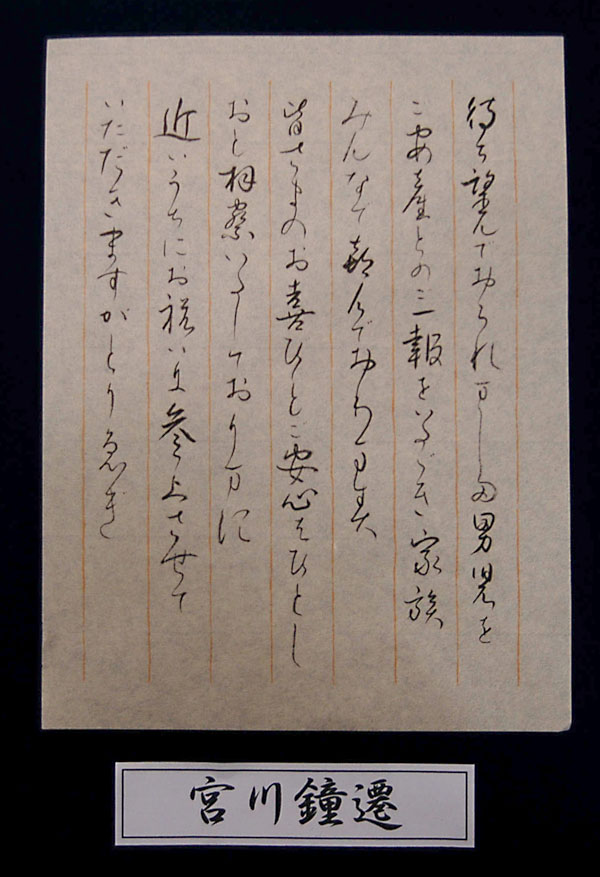 待ち望んでおられました男児を
ご安産とのご報をいただき家族
みんなで喜んでおります
皆さまのお喜びとご安心もひとし
おと拝察いたしております
近いうちにお祝いに参上させて
いただきますがとり急ぎ
宮川鐘遷